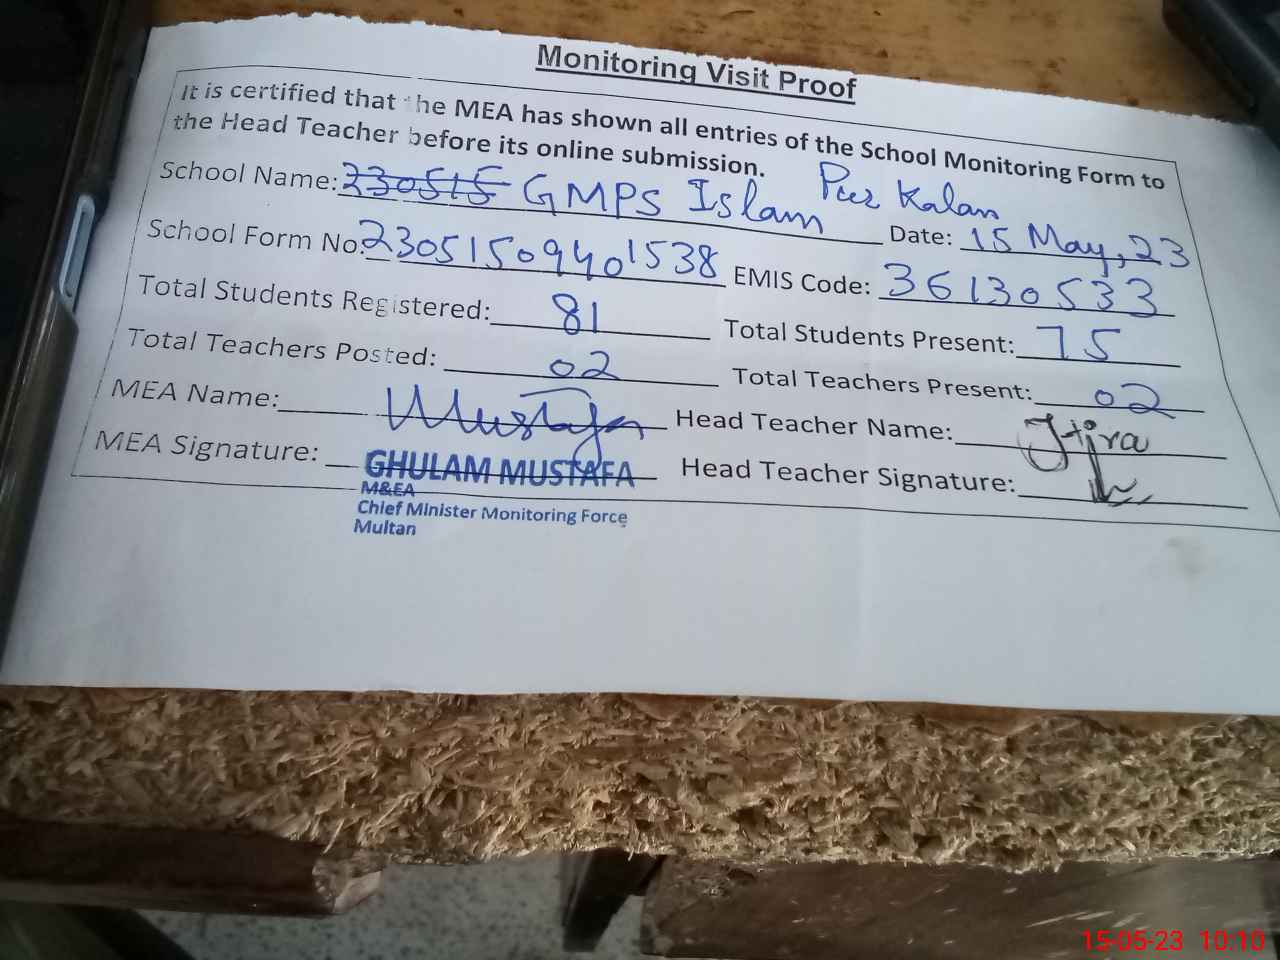 Monitoring Visit Proof
It is certified that the MEA has shown all entries of the School Monitoring Form to
the Head Teacher before its online submission.
School Name: 230515 GMPS Islam Peer Kalan Date: 15 May, 23
School Form No: 23051509401538 EMIS Code: 36130533
Total Students Registered: 81 Total Students Present: 75
Total Teachers Posted: 02 Total Teachers Present: 02
MEA Name: Mustafa Head Teacher Name: Hira
MEA Signature: Head Teacher Signature:
GHULAM MUSTAFA
M&EA
Chief Minister Monitoring Force
Multan
15-05-23 10:10